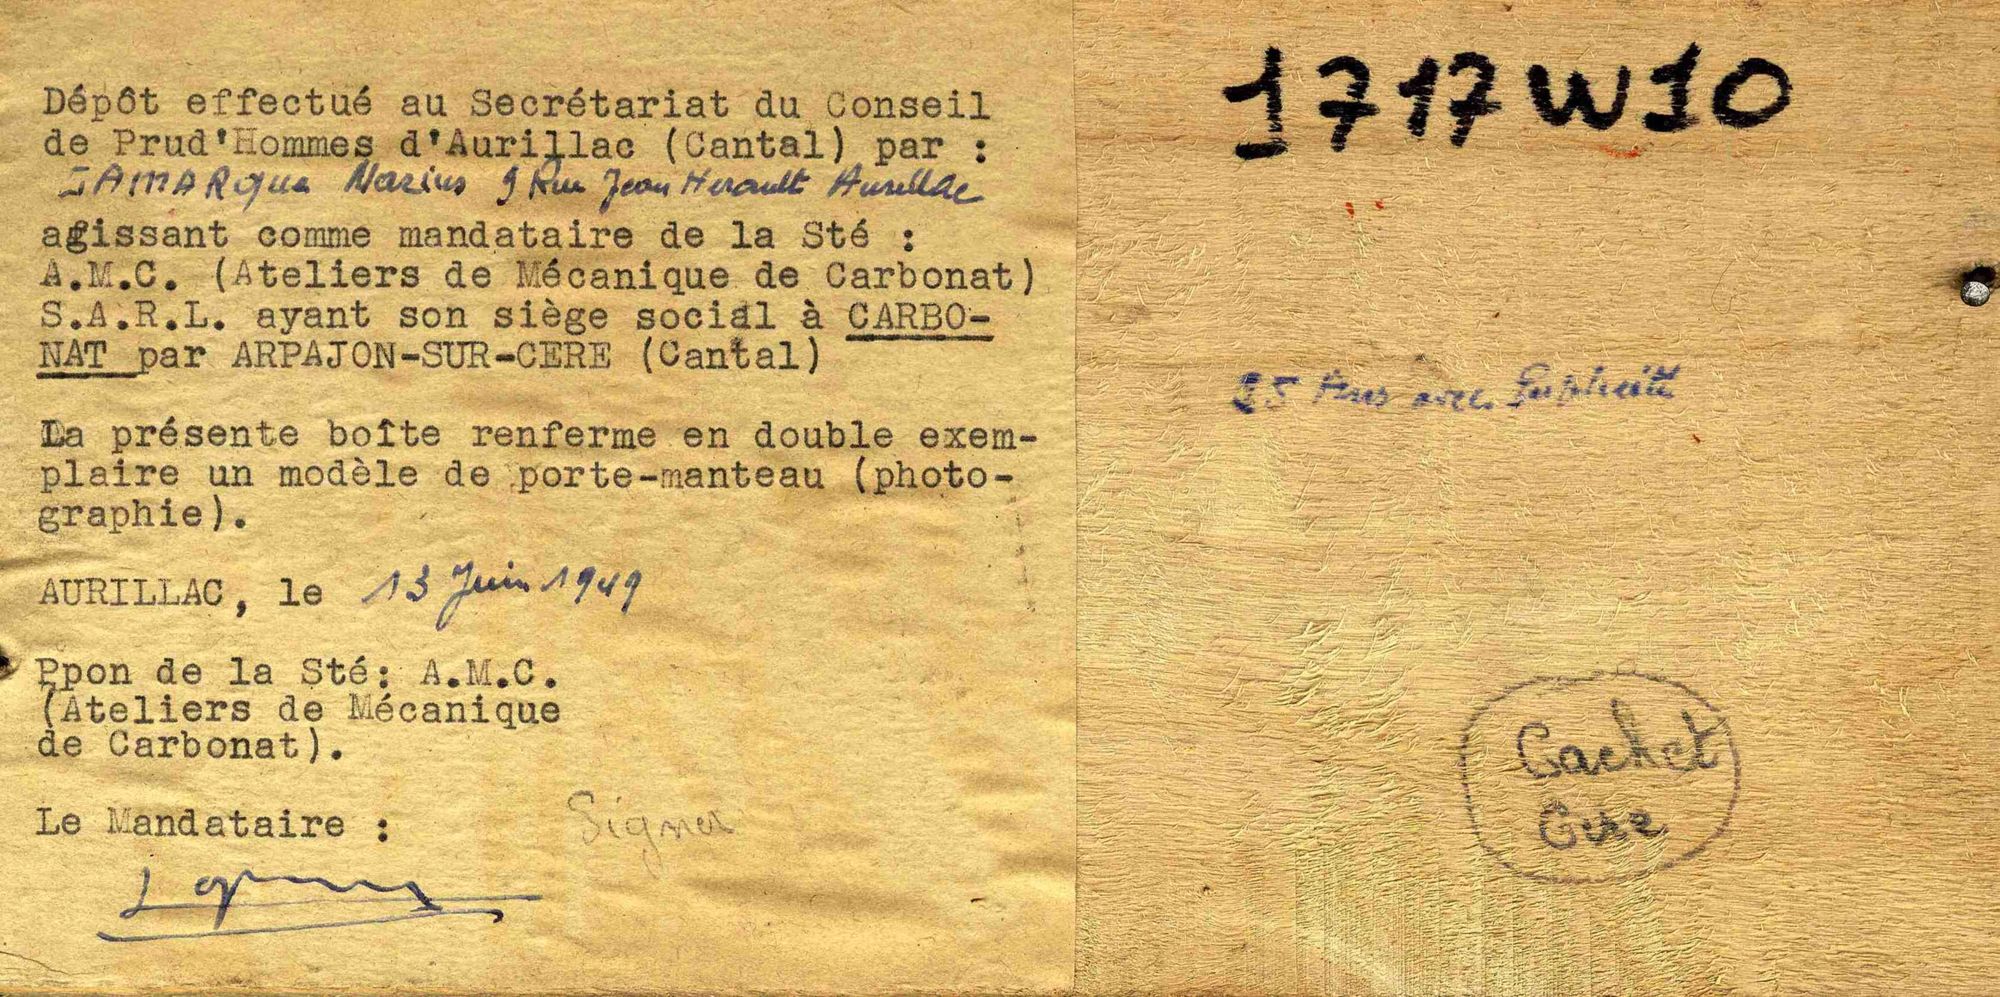 Dépôt effectué au Secrétariat du Conseil
de Prud'Hommes d'Aurillac (Cantal) par :
LAMARque Marius 9 Rue Jean Herault Aurillac
agissant comme mandataire de la Sté :
A.M.C. (Ateliers de Mécanique de Carbonat)
S.A.R.L. ayant son siège social à CARBO-
NAT par ARPAJON-SUR-CERE (Cantal)
La présente boîte renferme en double exem-
plaire un modèle de porte-manteau (photo-
graphie).
AURILLAC, le 13 Juin 1949
Ppon de la Sté: A.M.C.
(Ateliers de Mécanique
de Carbonat).
Le Mandataire :
Signer
1717W10
25 Ans avec Publicité
Cachet
Cire